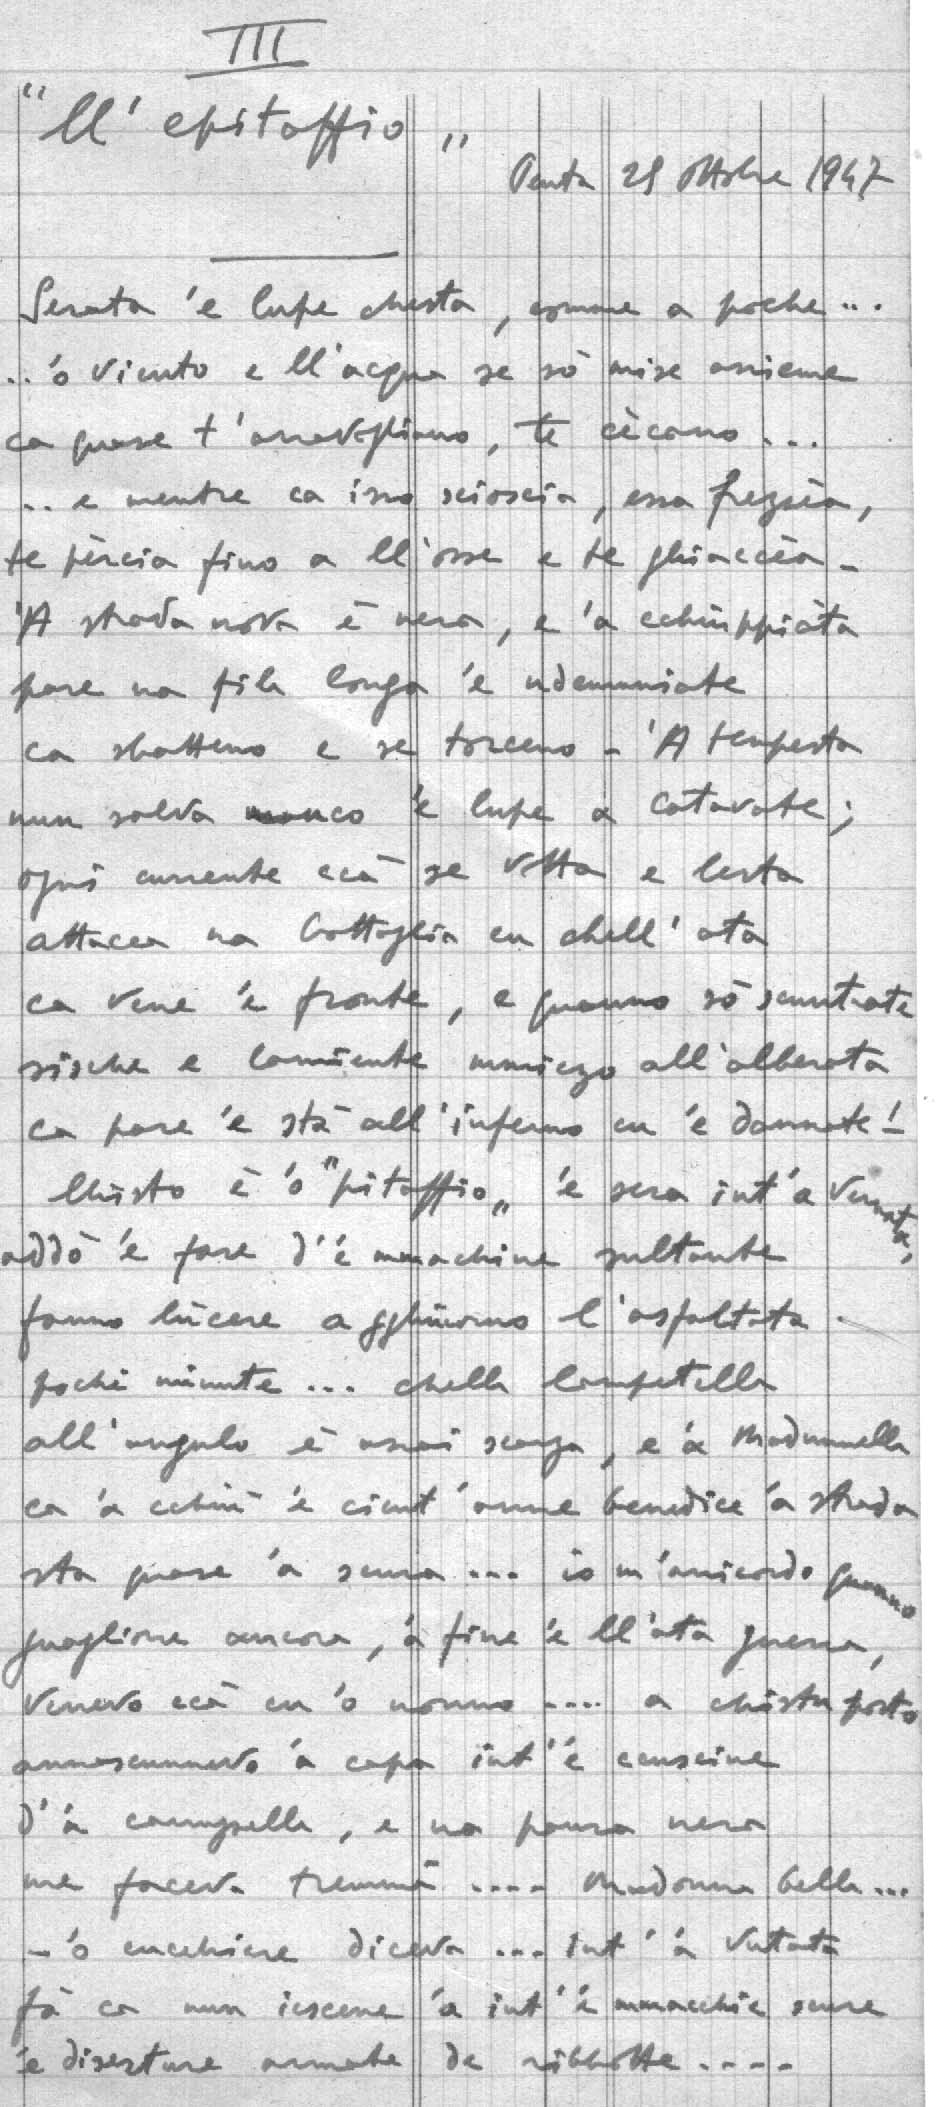 III
"Ll' epitaffio"
Penta 25 ottobre 1947
Serata 'e lupe chesta, comme a poche...
..'o viento e ll'acqua se sò mise assieme
ca quase t'arravogliano, te cècano...
.. e mentre ca isso scioscia, essa frezzéa,
te pèrcia fino a ll'osse e te ghiaccéa -
'A strada nova è nera, e 'a cchiuppiàta
pare na fila longa 'e ndemuniate
ca sbatteno e se torceno - 'A tempesta
nun salva manco 'e lupe a Catavate;
ogni currente ccà se votta e lesta
attacca na battaglia cu chell'ata
ca vene 'e fronte, e quanno sò scuntrate
sische e lamiente mmiezo all'alberata
ca pare 'e stà all'inferno cu 'e dannate! -
Chisto è 'o "pitaffio" 'e sera int'a vernata,
addò 'e fare d''e mmachine sultante
fanno lùcere a gghiuorno l'asfaltata
pochi minute... chella lampetella
all'angulo è assai scarza, e 'a Madunnella
ca 'a cchiù 'e cient'anne benedice 'a strada
sta quase 'a scura... io m'arricordo quanno
guaglione ancora, 'a fine 'e ll'ata guerra,
venevo ccà cu 'o nonno.... a chistu posto
annascunnevo 'a capa int''e cuscine
d''a carruzzella, e na paura nera
me faceva tremmà.... Madonna bella...
- 'o cucchiere diceva... int''a vutata
fà ca nun iescene 'a int''e mmacchie scure
'e diserture armate de ribbotte....